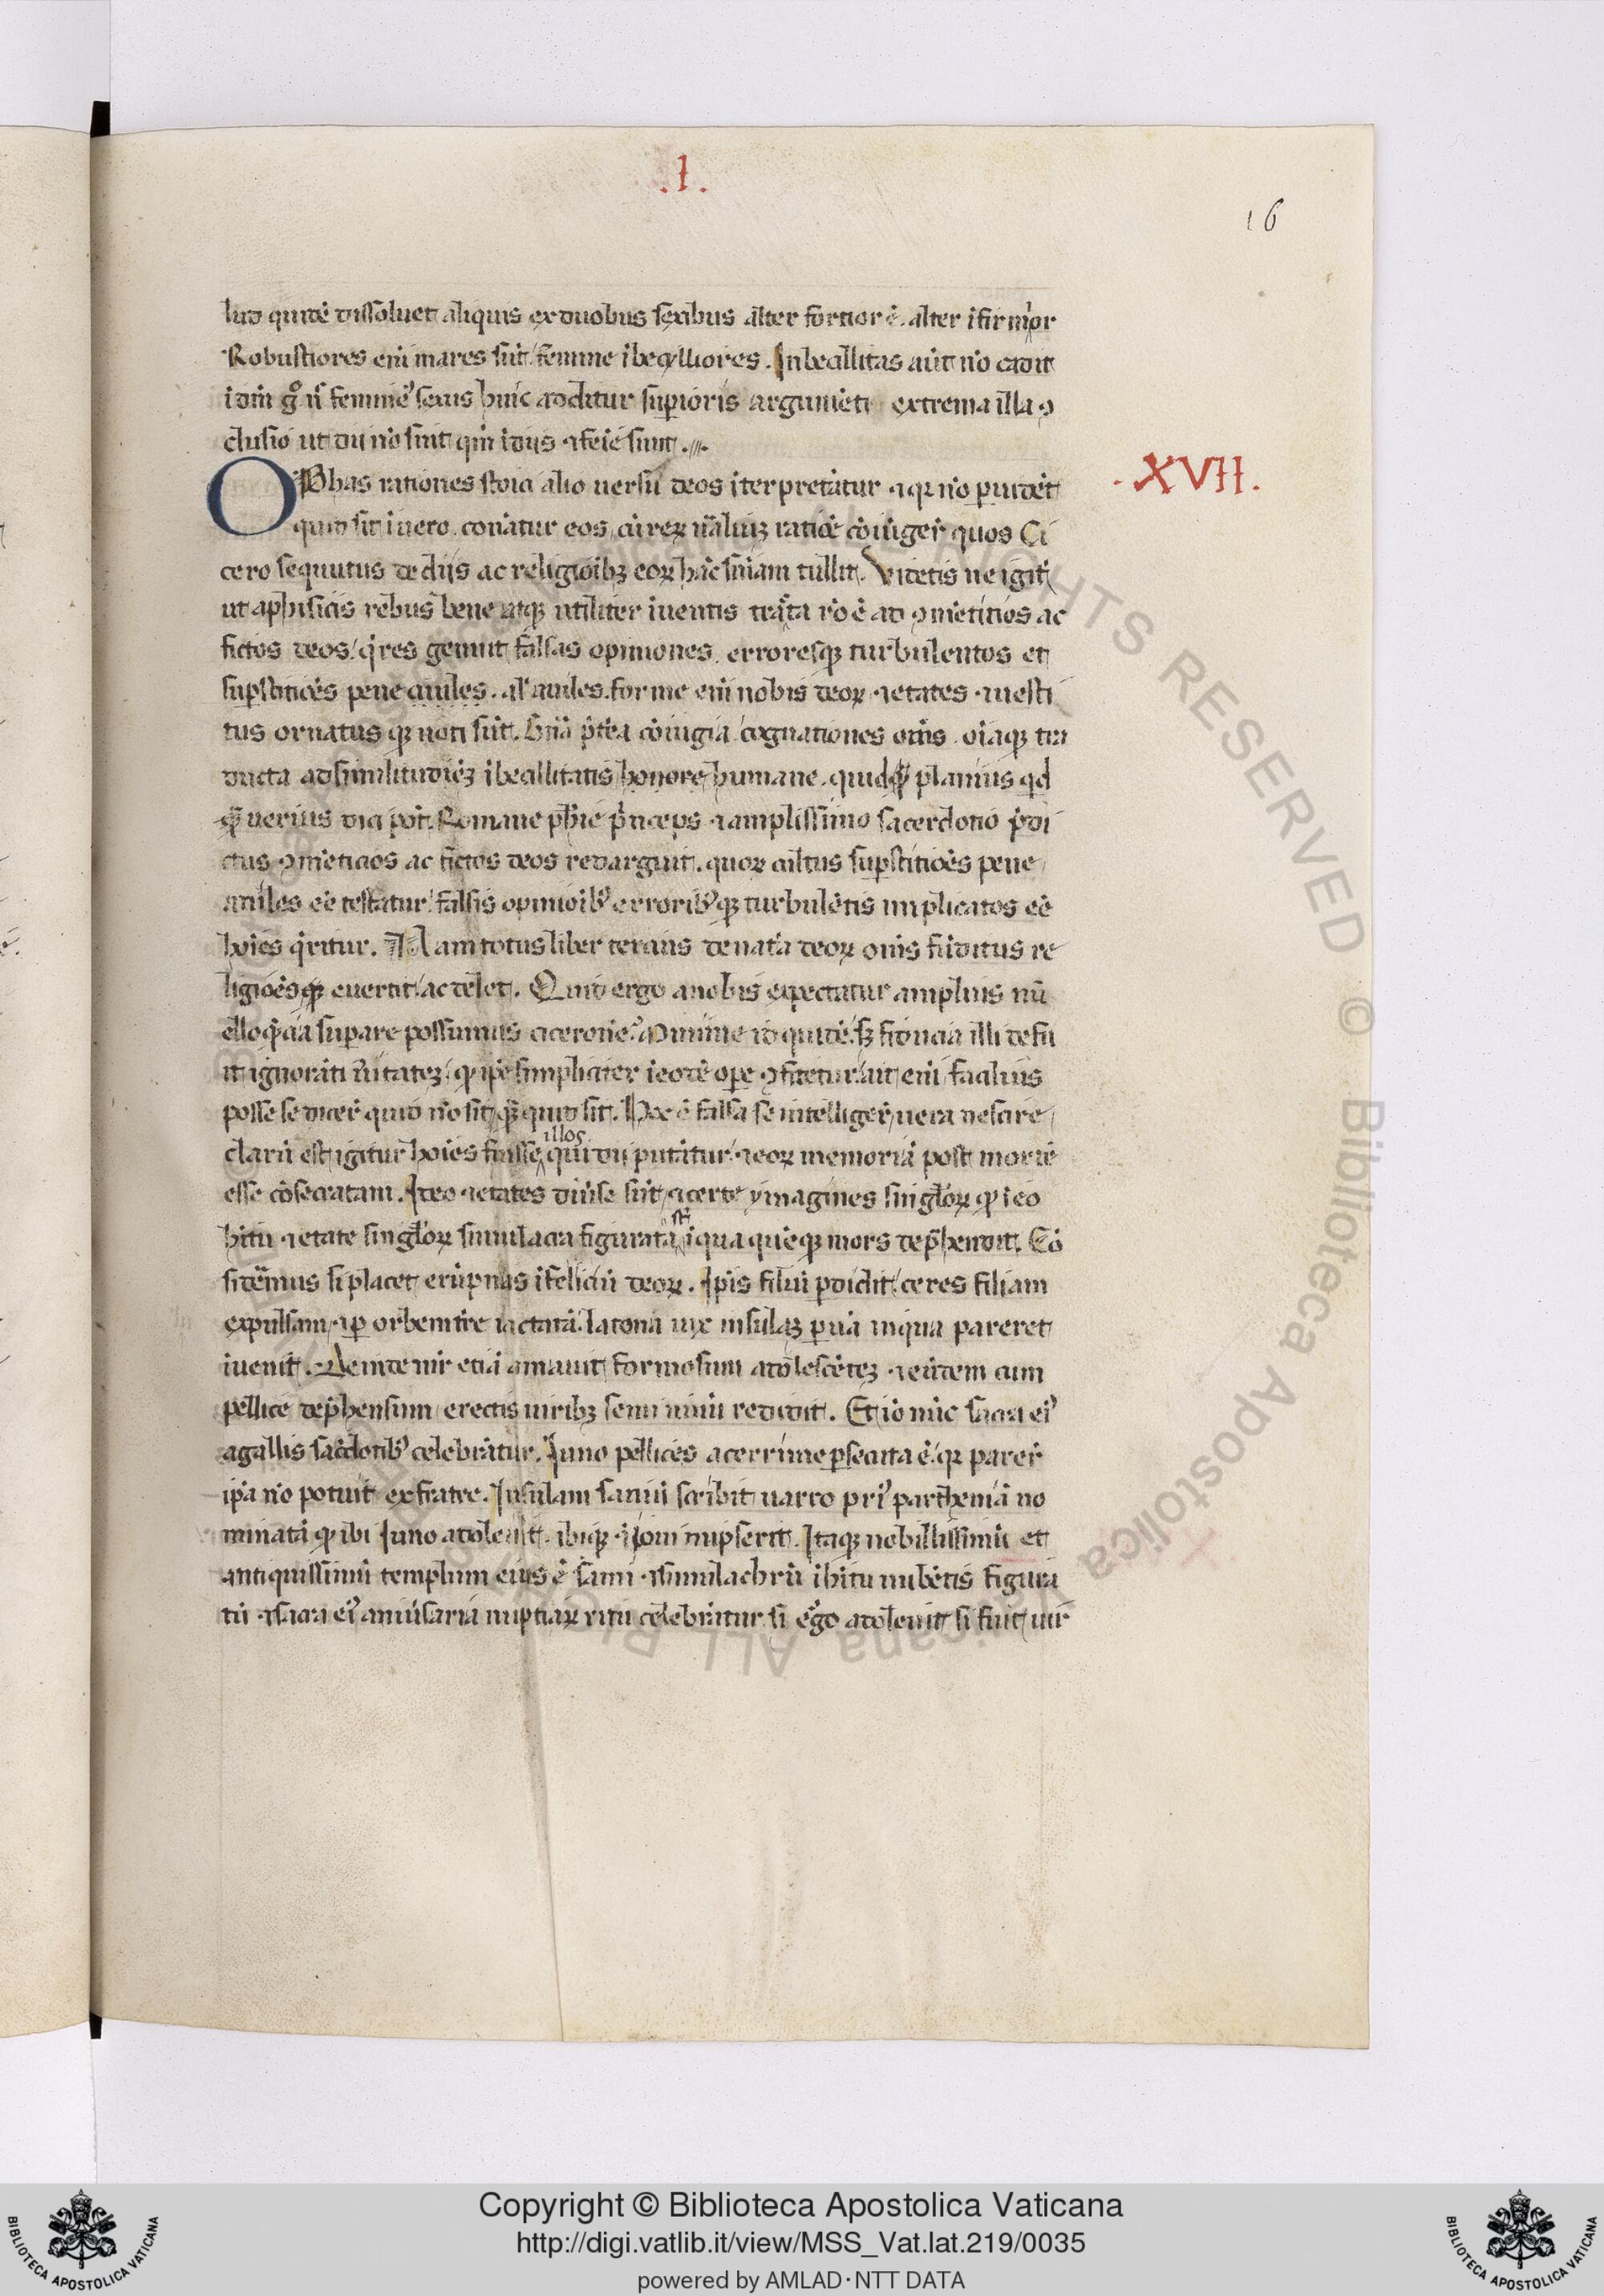 .I.
16
lud quidē dissoluet aliquis ex duobus sexibus alter fortior ē. alter ifirmior
Robustiores eni mares sūt femine ibecylliores. Inbecillitas aūt nō cadit
femine' sexus huic additur superioris argumēti extrema illa ꝯ
clusio ut dii nō sint
.XVII.
Ob has rationes stoici alio uersū deos iterpretātur
quid sit i uero. conātur eos cū reꝝ nāliuꝫ ratiōe cōiūgeř quos Ci
cero sequutus de diis ac religioibꝫ eoꝝ hāc sn̄iam tullit. Videtis ne igit̄
ut a phisicis rebus bene atqꝫ utiliter iuentis tracta rō ē ad ꝯmēticios ac
fictos deos/ q̄ res genuit falsas opiniones erroresqꝫ turbulentos et
supstitiōēs pene aniles. forme eni nobis deoꝝ ⁊ etates ⁊ uesti
tus ornatus qꝫ noti sūt. cōiugia cognationes om̄s oīaqꝫ tra
ducta ad similitudinēꝫ ibecillitatis humane. quid planius
uerius dici pōt. Romane ph̄ie p̄nceps ⁊ amplissimo sacerdotio p̄di
ctus ꝯmeticios ac fictos deos redarguit. quoꝝ cultus supstitiōēs pene
aniles eē testatur/ falsis opinioib' errorib'qꝫ turbulētis implicatos eē
hoīes q̄ritur. Nam totus liber tercius de natā deoꝝ om̄s fūditus re
ligiōēs qꝫ euertit/ ac delet. Quid ergo a nobis expectatur amplius nū
elloq̄cia supare possumus ciceronē? minime id quidē. sꝫ fiducia illi defu
it ignorāti ūitateꝫ/ simpliciter i eodē ope ꝯfitetur. ait eni facilius
posse se diceř quid nō sit quid sit. Hoc ē falsa se intelligeř/ uera nescire
clarū est igitur hoīes fuisse illos qui dii putātur/ ⁊ eoꝝ memoriā post mortē
esse cōsecratam. Ideo ⁊ etates diūse sūt ⁊ certe ymagines singl̄oꝝ
bitu ⁊ etate singl̄oꝝ simulacra figurata st̄ i qua quēqꝫ mors dep̄hendit. Cō
sidēmus si placet erūpnas ifeliciū deoꝝ. Ipsis filiū pdidit/ ceres filiam
expulsam/ ⁊ p orbem tr̄e iactatā. latona uix insulaꝫ puā in qua pareret
iuenit. Deinde mr̄ etiā amauit formosum adolescēteꝫ ⁊ eūdem cum
pellice dep̄hensum erectis uiribꝫ semi uirū reddidit. Et iō nūc sacra ei'
a gallis sac̄dotib' celebrātur. Iuno pellices acerrime psecuta ē. quia pareř
ip̄a nō potuit ex fratre. Insulam samū scribit uarro pri' partheniā no
minatā ibi Iuno adoleuit. ibiqꝫ ioui nupserit. Itaqꝫ nobillissimū et
antiquissimū templum eius ē sami ⁊ simulachrū i h̄itu nubētis figura
tū ⁊ sacra ei' aniūsaria nuptiaꝝ ritu celebrātur si ergo adoleuit si fuit uir
© Biblioteca Apostolica Vaticana ALL RIGHTS RESERVED
Copyright © Biblioteca Apostolica Vaticana
http://digi.vatlib.it/view/MSS_Vat.lat.219/0035
powered by AMLAD · NTT DATA
BIBLIOTECA APOSTOLICA VATICANA
BIBLIOTECA APOSTOLICA VATICANA